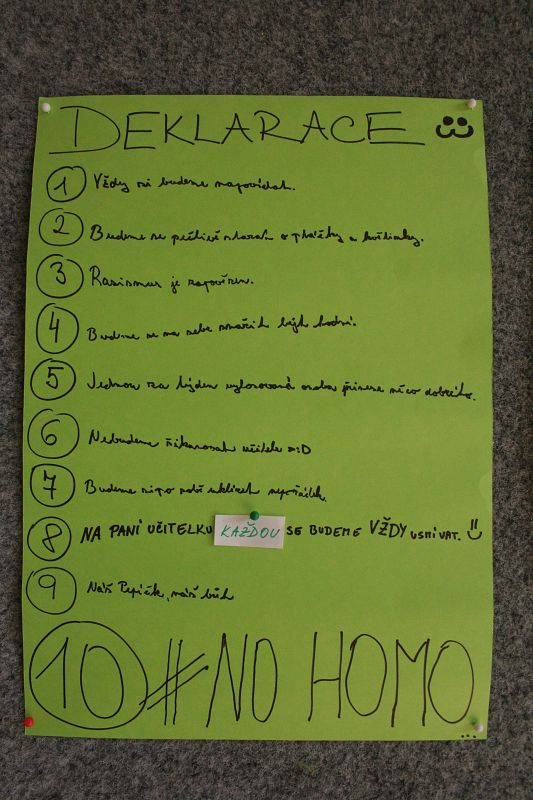 DEKLARACE
1 Vždy si budeme napovídat.
2 Budeme se pečlivě starat o ptáčky a kvítinky.
3 Rasismus je zapovězen.
4 Budeme se na sebe snažit být hodní.
5 Jednou za týden vylosovaná osoba přinese něco dobrého.
6 Nebudeme šikanovat učitele :D
7 Budeme po sobě uklízet
8 NA PANÍ UČITELKU KAŽDOU SE BUDEME VŽDY USMÍVAT.
9 Náš Pepíček, náš bůh
10 # NO HOMO